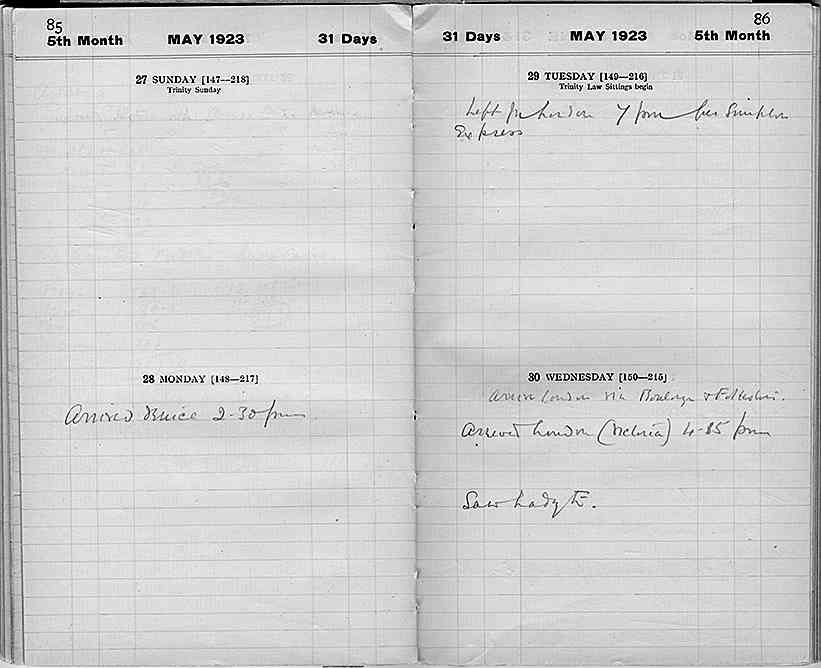 85
5th Month MAY 1923 31 Days
27 SUNDAY [147—218]
Trinity Sunday
28 MONDAY [148—217]
Arrived Venice 2-30 pm
86
31 Days MAY 1923 5th Month
29 TUESDAY [149—216]
Trinity Law Sittings begin
Left for London 7 pm per Simplon
Express
30 WEDNESDAY [150—215]
arrive London via Boulogne & Folkestone.
Arrived London (Victoria) pm
Saw Lady E.